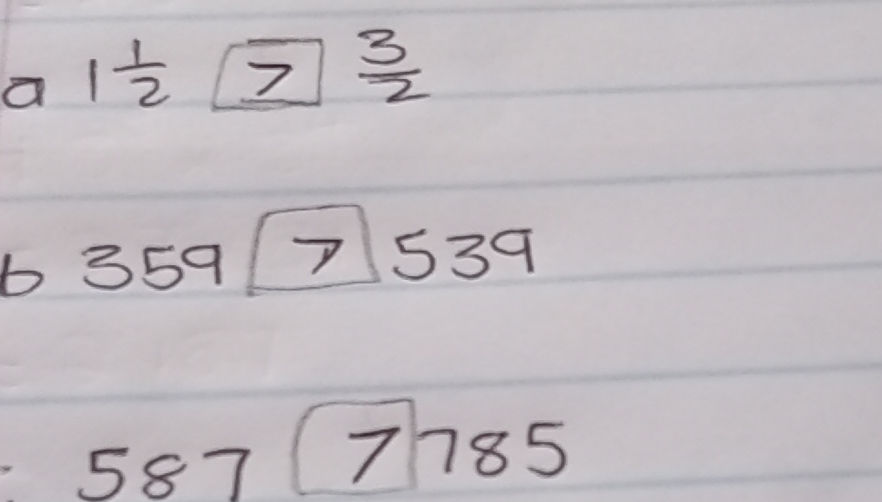 a 1 1/2 > 3/2
b 359 > 539
587 > 785